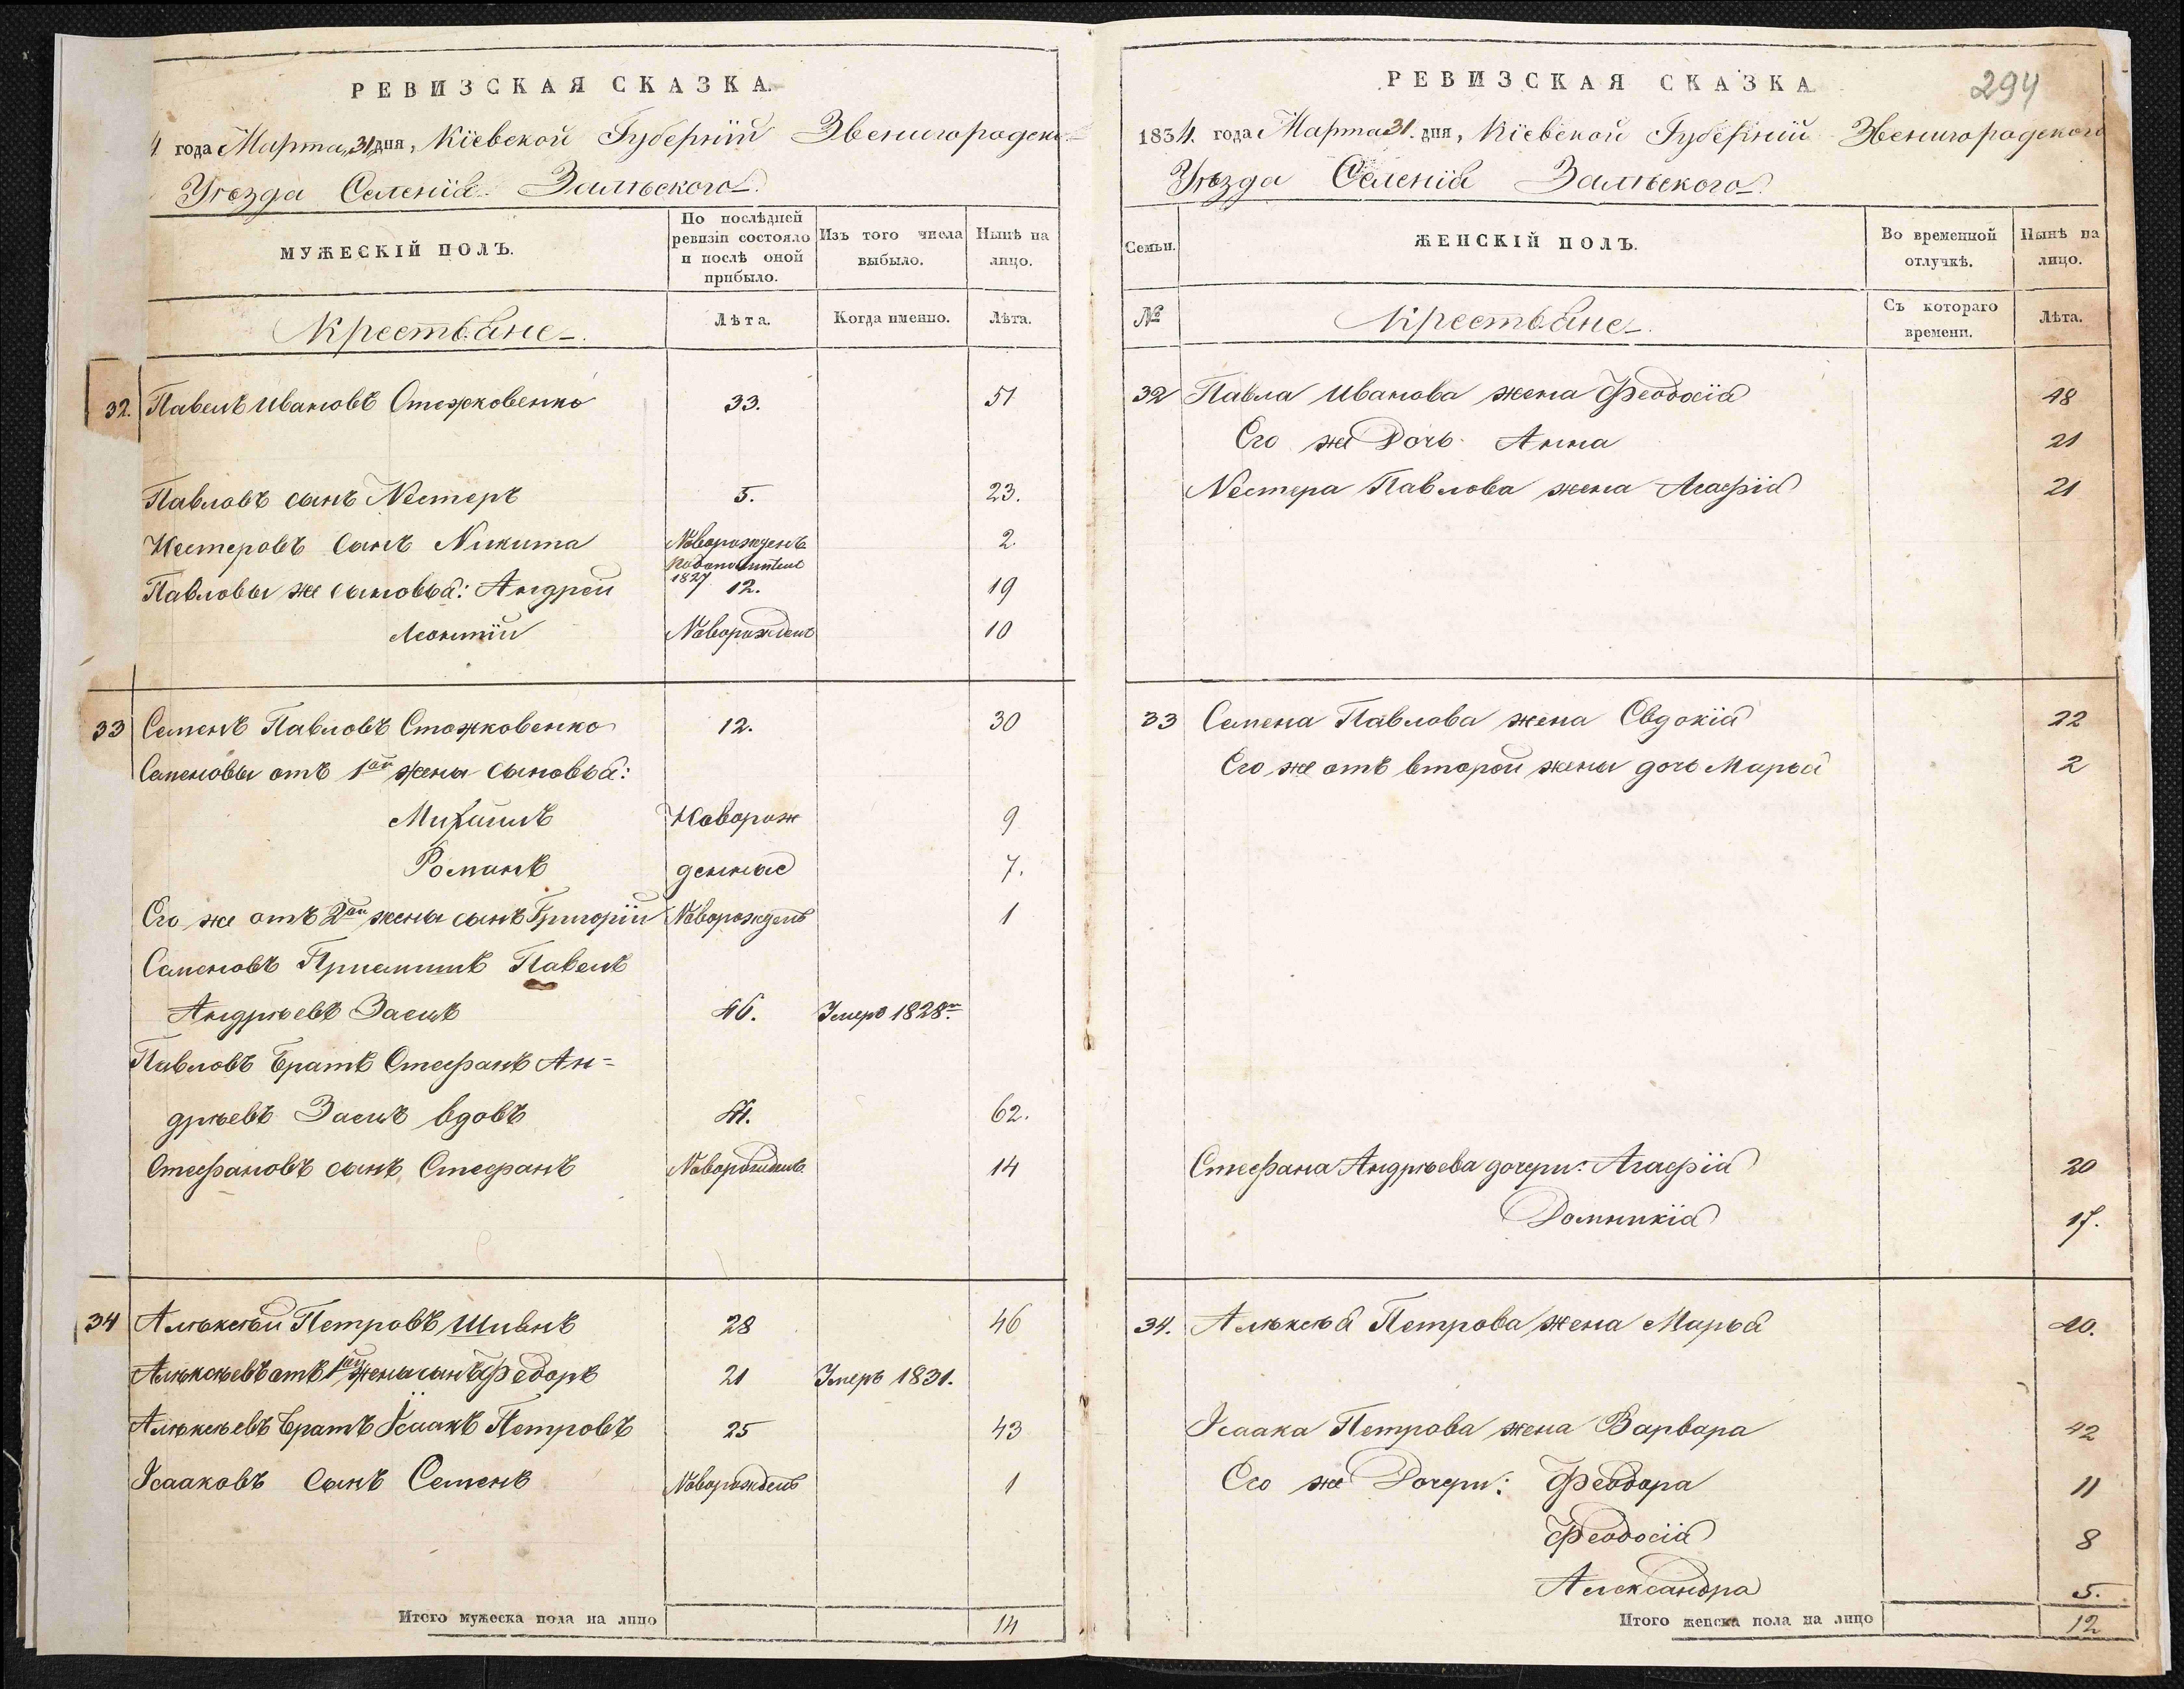 РЕВИЗСКАЯ СКАЗКА.
4. года Марта 31 дня, Кіевской Губерніи Звенигородско-
Уезда Селенія Залѣского
МУЖЕСКІЙ ПОЛЪ.
По послѣдней ревизіи состояло и послѣ оной прибыло.
Изъ того числа выбыло.
Нынѣ на лицо.
Крестьяне
Лѣта.
Когда именно.
Лѣта.
32. Павелъ Ивановъ Стожковенко 33. 51
Павловъ сынъ Нестеръ 5. 23.
Нестеровъ Сынъ Никита Новорожденъ 2.
1827
Павловы же сыновья: Андрей 12. 19
Леонтій Новорожденъ 10
33 Семенъ Павловъ Стожковенко 12. 30
Семеновы отъ 1ой жены сыновья:
Михаилъ Новорож 9
Романъ денные 7.
Его же отъ 2ой жены сынъ Григорій Новорожденъ 1
Семеновъ Приемишъ Павелъ
Андрѣевъ Заецъ 46. Умеръ 1828го
Павловъ братъ Стефанъ Ан=
дрѣевъ Заецъ вдовъ 44. 62.
Стефановъ сынъ Стефанъ Новорожденъ 14
34 Алѣксѣй Петровъ Шивнъ 28 46
Алѣксѣевъ отъ 1ой жены сынъ Федоръ 21 Умеръ 1831.
Алѣксѣевъ братъ Ісаакъ Петровъ 25 43
Ісааковъ Сынъ Семенъ Новорожденъ 1
Итого мужеска пола на лицо 14
294
РЕВИЗСКАЯ СКАЗКА
1834. года Марта 31. дня, Кіевской Губерніи Звенигородского
Уѣзда Селенія Залѣского
Семьи.
ЖЕНСКІЙ ПОЛЪ.
Во временной отлучкѣ.
Нынѣ на лицо.
№
Крестьяне
Съ котораго времени.
Лѣта.
32 Павла Иванова жена Феодосія 48
Его же Дочь Анна 21
Нестера Павлова жена Агафія 21
33 Семена Павлова жена Евдокія 22
Его же отъ второй жены дочь Марья 2
Стефана Андрѣева дочери: Агафія 20
Домникія 17.
34. Алѣксѣя Петрова жена Марья 40.
Ісаака Петрова жена Варвара 42
Его же Дочери: Феодора 11
Феодосія 8
Александра 5.
Итого женска пола на лицо 12